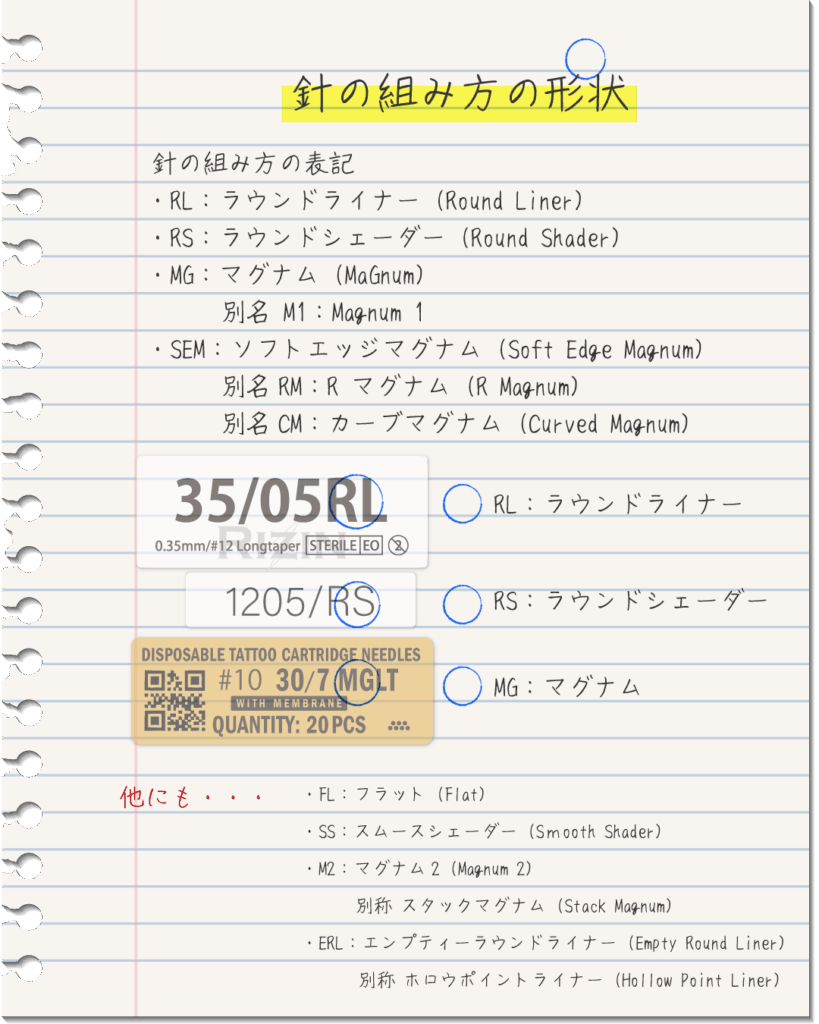 針の組み方の形状
針の組み方の表記
・RL：ラウンドライナー (Round Liner)
・RS：ラウンドシェーダー (Round Shader)
・MG：マグナム (MaGnum)
別名 M1：Magnum 1
・SEM：ソフトエッジマグナム (Soft Edge Magnum)
別名 RM：R マグナム (R Magnum)
別名 CM：カーブマグナム (Curved Magnum)
35/05RL
RL：ラウンドライナー
RIZIN
0.35mm/#12 Longtaper STERILE EO 2
1205/RS
RS：ラウンドシェーダー
DISPOSABLE TATTOO CARTRIDGE NEEDLES
#10 30/7 MGLT
MG：マグナム
WITH MEMBRANE
QUANTITY: 20 PCS
他にも・・・
・FL：フラット (Flat)
・SS：スムースシェーダー (Smooth Shader)
・M2：マグナム2 (Magnum 2)
別称 スタックマグナム (Stack Magnum)
・ERL：エンプティーラウンドライナー (Empty Round Liner)
別称 ホロウポイントライナー (Hollow Point Liner)